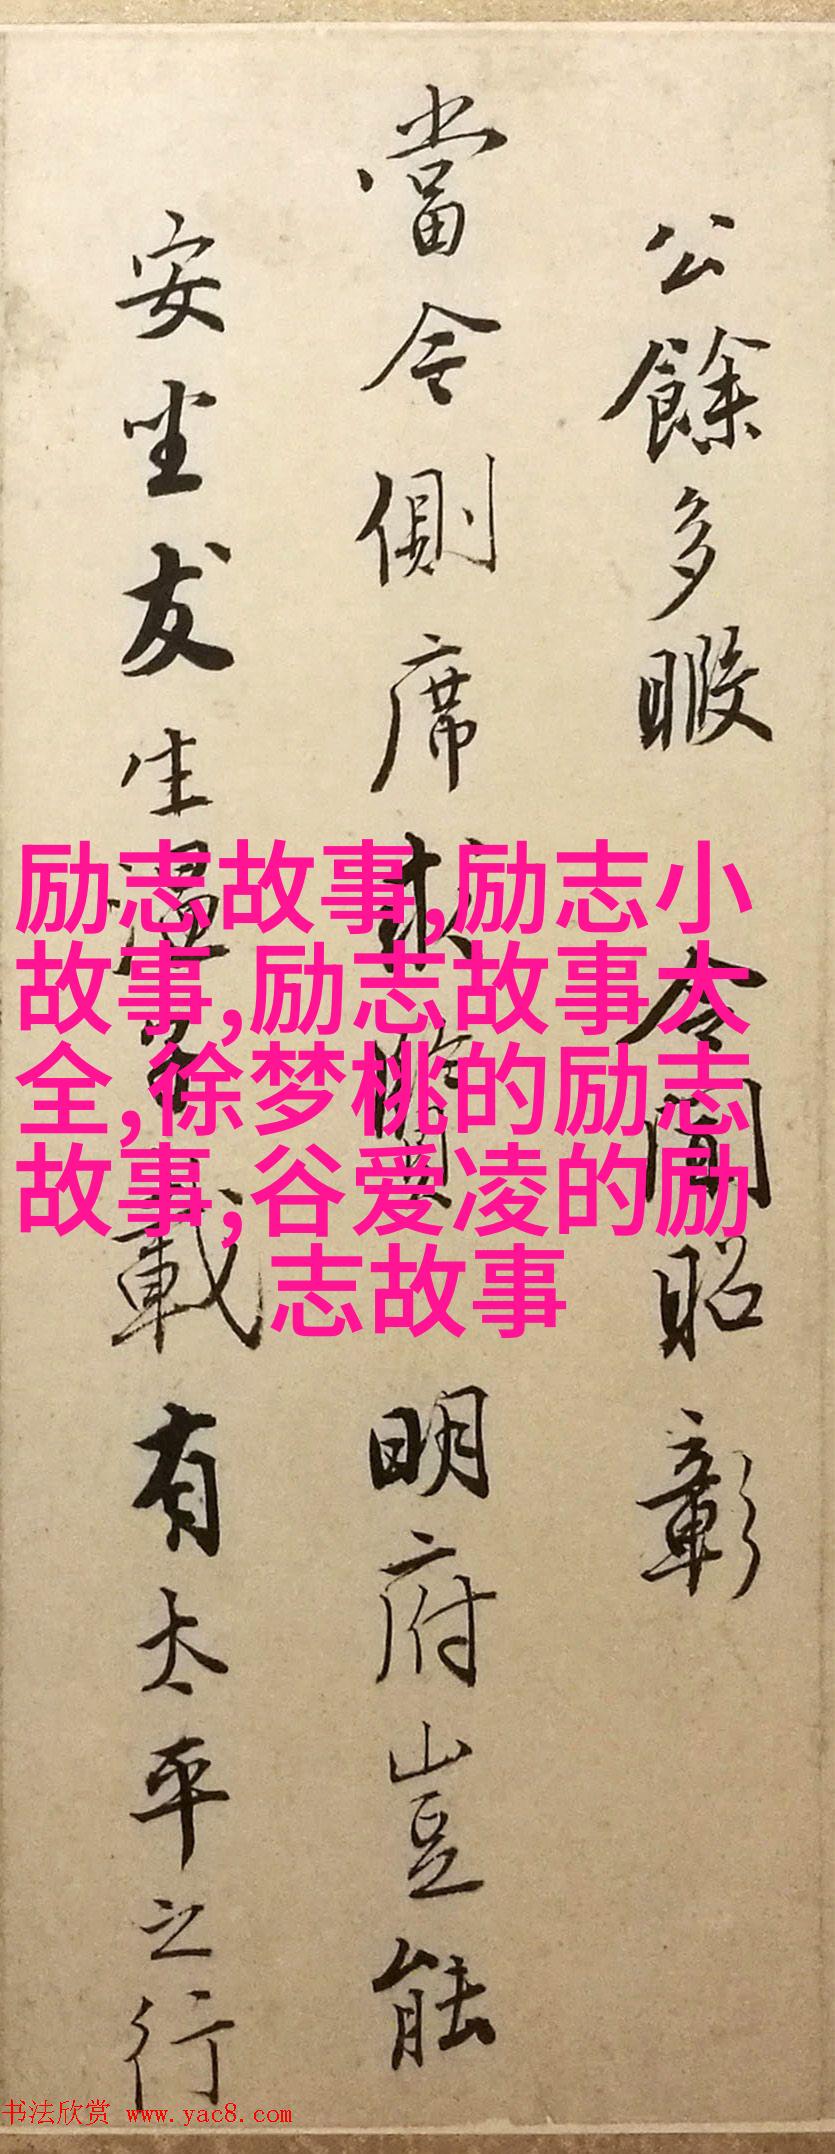 公餘多暇 令聞昭彰
當今側席求賢 明府豈能
安坐友生 載有太平之行
励志故事,励志小
故事,励志故事大
全,徐梦桃的励志
故事,谷爱凌的励
志故事
书法欣赏 www.yac8.com